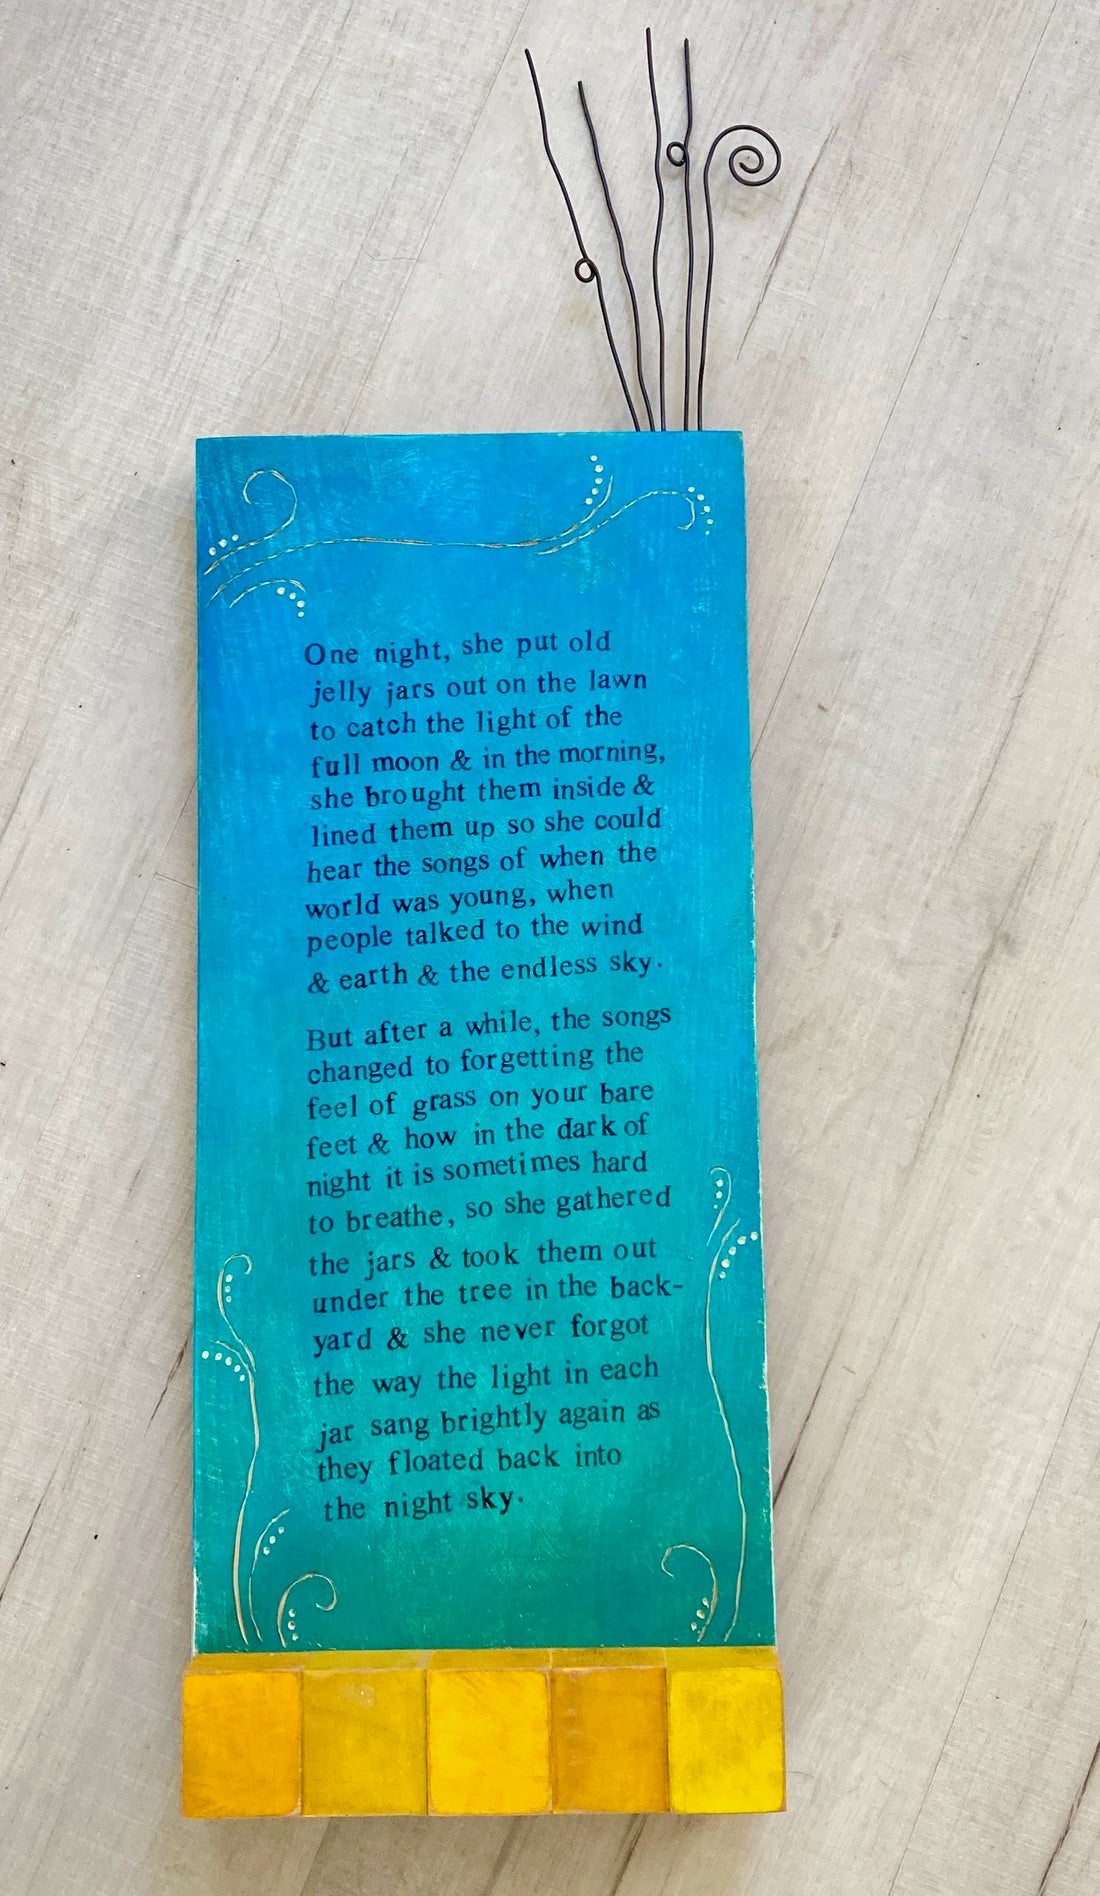 One night, she put old
jelly jars out on the lawn
to catch the light of the
full moon & in the morning,
she brought them inside &
lined them up so she could
hear the songs of when the
world was young, when
people talked to the wind
& earth & the endless sky.
But after a while, the songs
changed to forgetting the
feel of grass on your bare
feet & how in the dark of
night it is sometimes hard
to breathe, so she gathered
the jars & took them out
under the tree in the back-
yard & she never forgot
the way the light in each
jar sang brightly again as
they floated back into
the night sky.